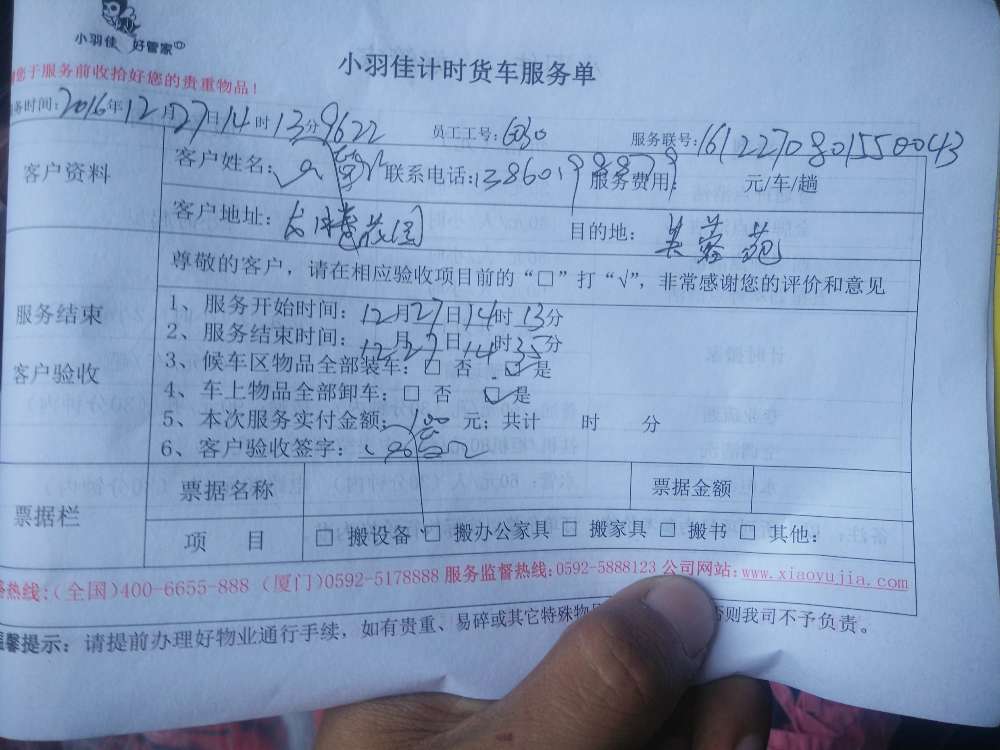 小羽佳 好管家
小羽佳计时货车服务单
您于服务前收拾好您的贵重物品！
务时间：2016年12月27日14时13分9622 员工工号：6030 服务联号：161227080155 0043
客户资料
客户姓名： 联系电话：13860199879 服务费用： 元/车/趟
客户地址： 目的地：芙蓉苑
尊敬的客户，请在相应验收项目前的“□”打“√”，非常感谢您的评价和意见
服务结束
客户验收
1、服务开始时间：12月27日14时13分
2、服务结束时间：12月27日14时35分
3、候车区物品全部装车：□ 否 ☑ 是
4、车上物品全部卸车：□ 否 ☑ 是
5、本次服务实付金额：100元；共计 时 分
6、客户验收签字：
票据栏
票据名称 票据金额
项 目 □ 搬设备 □ 搬办公家具 □ 搬家具 □ 搬书 □ 其他：
热线：（全国）400-6655-888（厦门）0592-5178888 服务监督热线：0592-5888123 公司网站：www.xiaoyujia.com
温馨提示：请提前办理好物业通行手续，如有贵重、易碎或其它特殊物 否则我司不予负责。